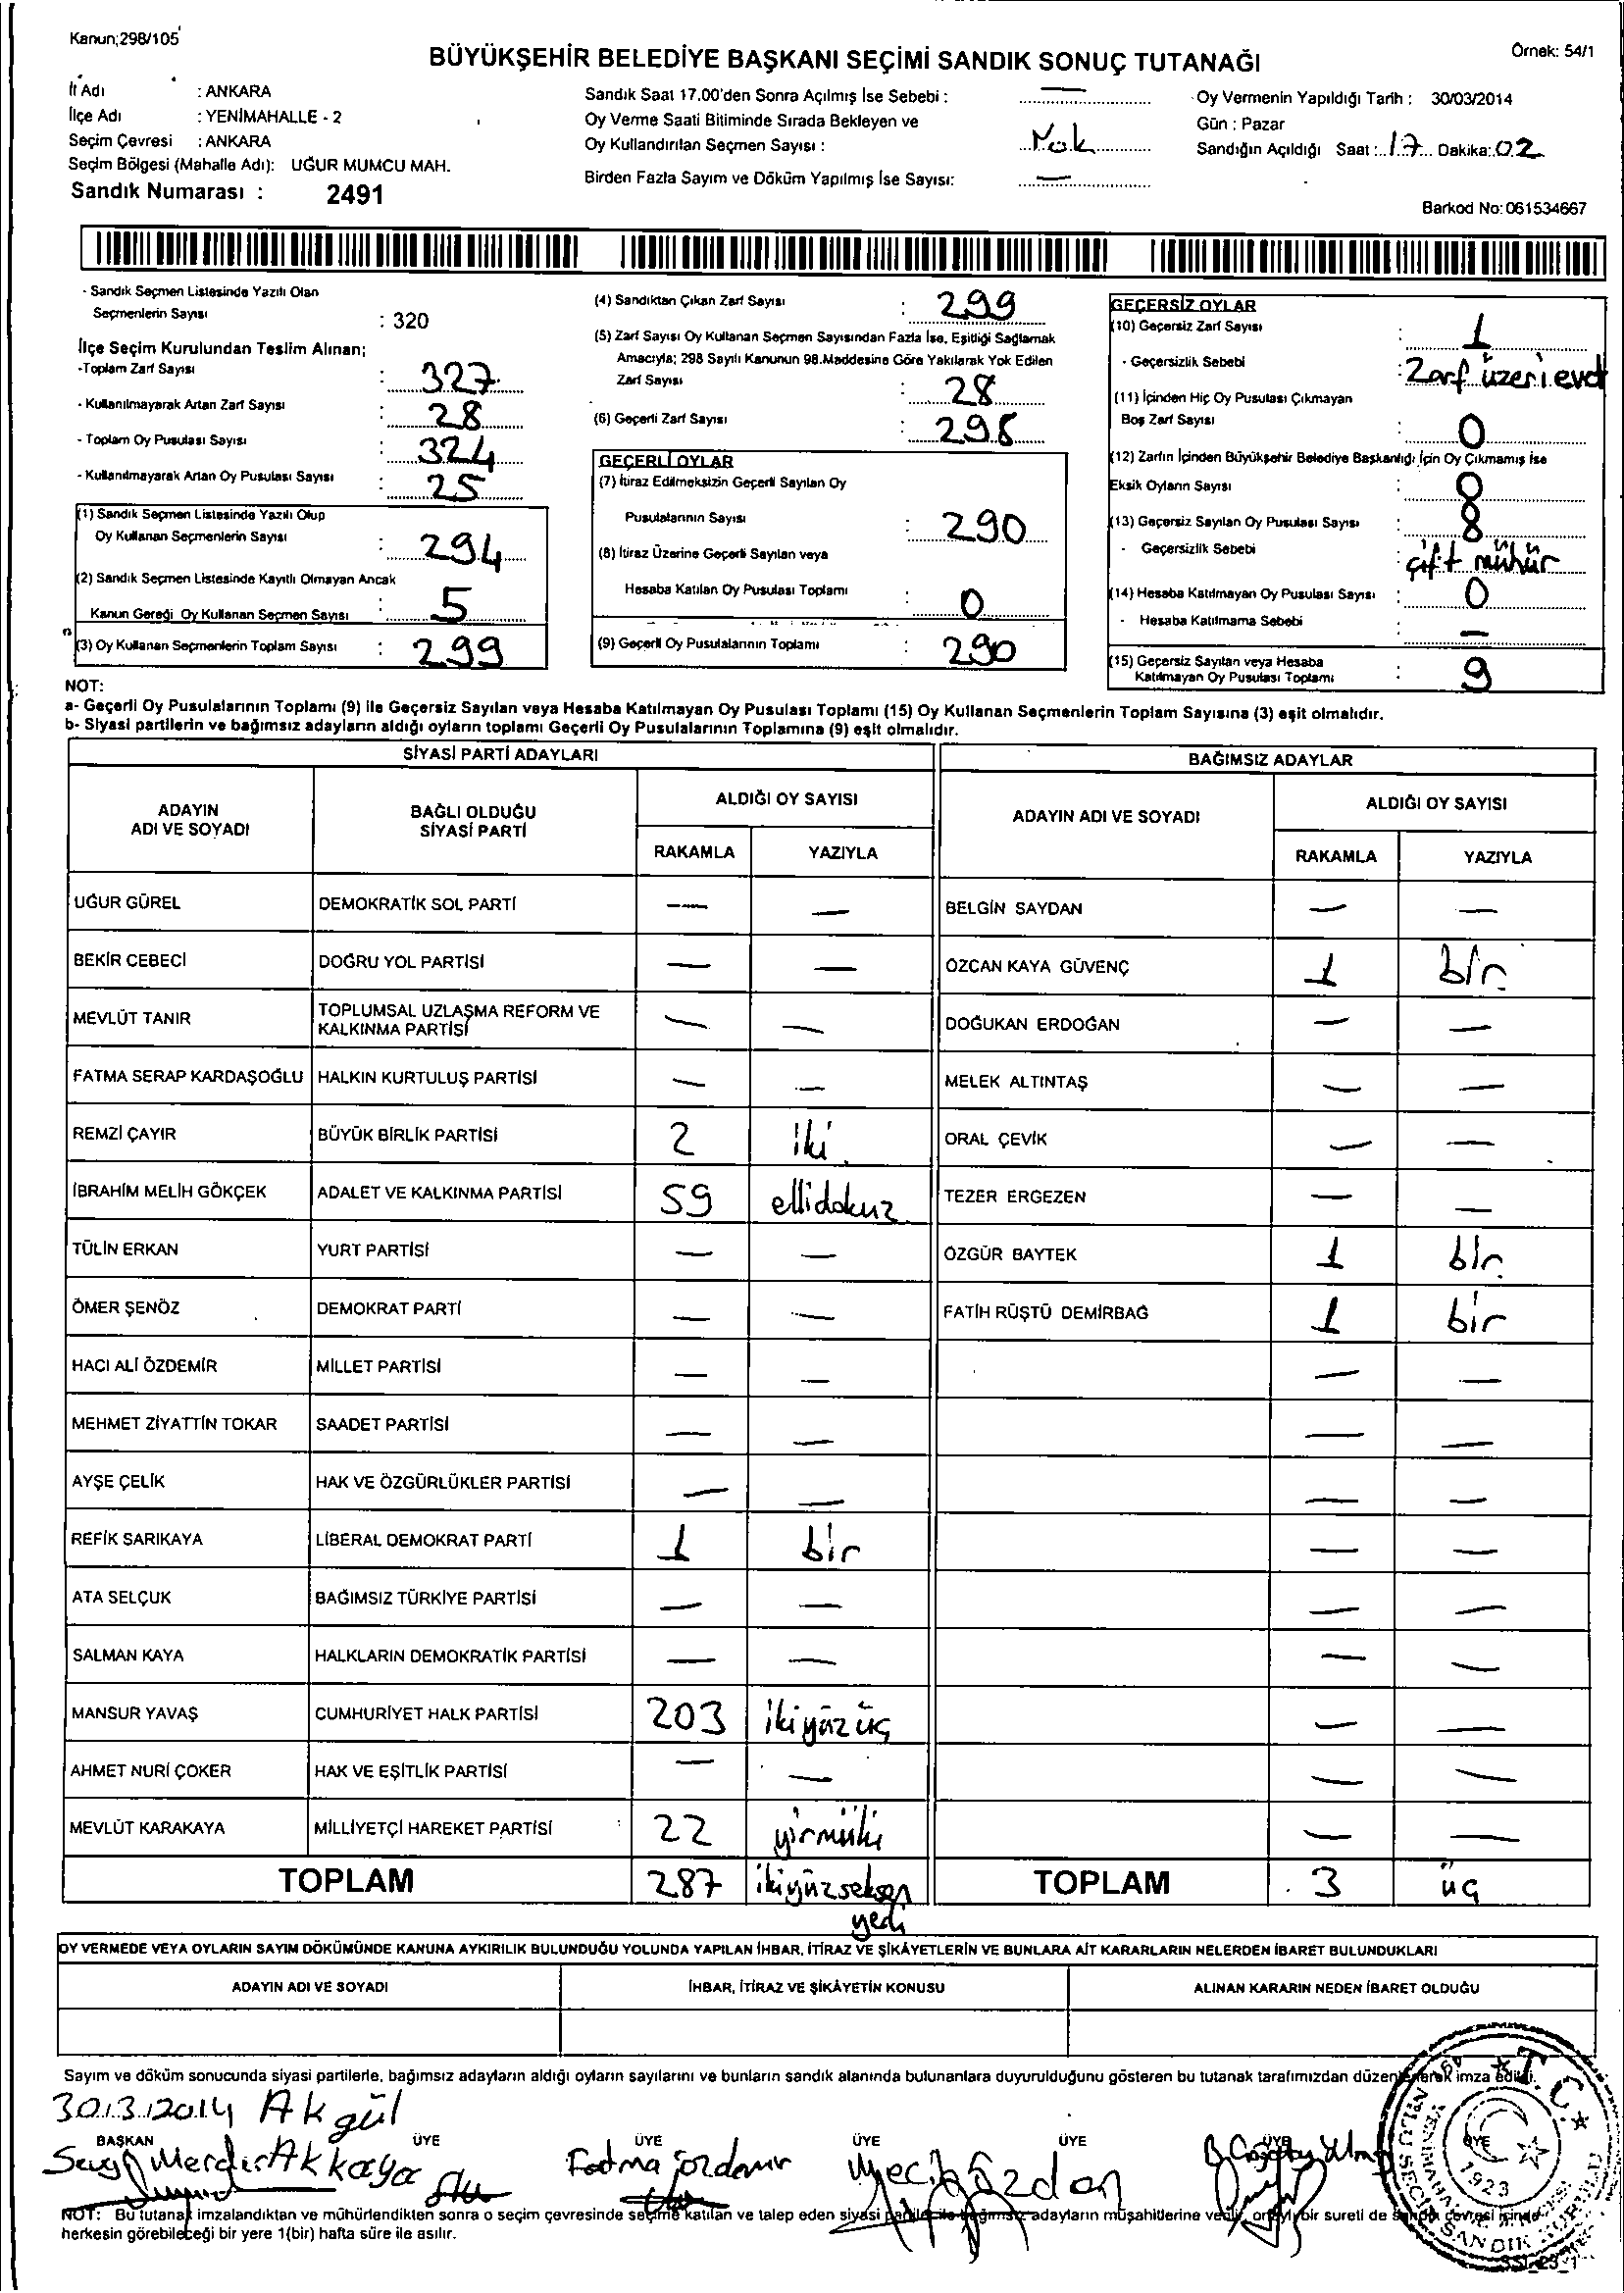 Kanun;298/105
BÜYÜKŞEHİR BELEDİYE BAŞKANI SEÇİMİ SANDIK SONUÇ TUTANAĞI
Örnek: 54/1
İl Adı : ANKARA
İlçe Adı : YENİMAHALLE - 2
Seçim Çevresi : ANKARA
Seçim Bölgesi (Mahalle Adı): UĞUR MUMCU MAH.
Sandık Numarası : 2491
Sandık Saat 17.00'den Sonra Açılmış İse Sebebi : —
Oy Verme Saati Bitiminde Sırada Bekleyen ve
Oy Kullandırılan Seçmen Sayısı : Yok
Birden Fazla Sayım ve Döküm Yapılmış İse Sayısı: —
Oy Vermenin Yapıldığı Tarih : 30/03/2014
Gün : Pazar
Sandığın Açıldığı Saat : 17 Dakika: 02
Barkod No: 061534667
- Sandık Seçmen Listesinde Yazılı Olan
Seçmenlerin Sayısı : 320
İlçe Seçim Kurulundan Teslim Alınan;
-Toplam Zarf Sayısı : 327
- Kullanılmayarak Artan Zarf Sayısı : 28
- Toplam Oy Pusulası Sayısı : 324
- Kullanılmayarak Artan Oy Pusulası Sayısı : 25
(1) Sandık Seçmen Listesinde Yazılı Olup
Oy Kullanan Seçmenlerin Sayısı : 294
(2) Sandık Seçmen Listesinde Kayıtlı Olmayan Ancak
Kanun Gereği Oy Kullanan Seçmen Sayısı : 5
(3) Oy Kullanan Seçmenlerin Toplam Sayısı : 299
(4) Sandıktan Çıkan Zarf Sayısı : 299
(5) Zarf Sayısı Oy Kullanan Seçmen Sayısından Fazla İse, Eşitliği Sağlamak
Amacıyla; 298 Sayılı Kanunun 98.Maddesine Göre Yakılarak Yok Edilen
Zarf Sayısı : 28
(6) Geçerli Zarf Sayısı : 298
GEÇERLİ OYLAR
(7) İtiraz Edilmeksizin Geçerli Sayılan Oy
Pusulalarının Sayısı : 290
(8) İtiraz Üzerine Geçerli Sayılan veya
Hesaba Katılan Oy Pusulası Toplamı : 0
(9) Geçerli Oy Pusulalarının Toplamı : 290
GEÇERSİZ OYLAR
(10) Geçersiz Zarf Sayısı : 1
- Geçersizlik Sebebi : Zarf üzeri
(11) İçinden Hiç Oy Pusulası Çıkmayan
Boş Zarf Sayısı : 0
(12) Zarfın İçinden Büyükşehir Belediye Başkanlığı İçin Oy Çıkmamış İse
Eksik Oyların Sayısı : 0
(13) Geçersiz Sayılan Oy Pusulası Sayısı : 8
- Geçersizlik Sebebi : çift mühür
(14) Hesaba Katılmayan Oy Pusulası Sayısı : 0
- Hesaba Katılmama Sebebi : —
(15) Geçersiz Sayılan veya Hesaba
Katılmayan Oy Pusulası Toplamı : 9
NOT:
a- Geçerli Oy Pusulalarının Toplamı (9) ile Geçersiz Sayılan veya Hesaba Katılmayan Oy Pusulası Toplamı (15) Oy Kullanan Seçmenlerin Toplam Sayısına (3) eşit olmalıdır.
b- Siyasi partilerin ve bağımsız adayların aldığı oyların toplamı Geçerli Oy Pusulalarının Toplamına (9) eşit olmalıdır.
SİYASİ PARTİ ADAYLARI
BAĞIMSIZ ADAYLAR
ADAYIN ADI VE SOYADI
BAĞLI OLDUĞU SİYASİ PARTİ
ALDIĞI OY SAYISI
RAKAMLA YAZIYLA
ADAYIN ADI VE SOYADI
ALDIĞI OY SAYISI
RAKAMLA YAZIYLA
UĞUR GÜREL DEMOKRATİK SOL PARTİ — — BELGİN SAYDAN — —
BEKİR CEBECİ DOĞRU YOL PARTİSİ — — ÖZCAN KAYA GÜVENÇ 1 bir
MEVLÜT TANIR TOPLUMSAL UZLAŞMA REFORM VE KALKINMA PARTİSİ — — DOĞUKAN ERDOĞAN — —
FATMA SERAP KARDAŞOĞLU HALKIN KURTULUŞ PARTİSİ — — MELEK ALTINTAŞ — —
REMZİ ÇAYIR BÜYÜK BİRLİK PARTİSİ 2 iki ORAL ÇEVİK — —
İBRAHİM MELİH GÖKÇEK ADALET VE KALKINMA PARTİSİ 59 ellidokuz TEZER ERGEZEN — —
TÜLİN ERKAN YURT PARTİSİ — — ÖZGÜR BAYTEK 1 bir
ÖMER ŞENÖZ DEMOKRAT PARTİ — — FATİH RÜŞTÜ DEMİRBAĞ 1 bir
HACI ALİ ÖZDEMİR MİLLET PARTİSİ — — — —
MEHMET ZİYATTİN TOKAR SAADET PARTİSİ — — — —
AYŞE ÇELİK HAK VE ÖZGÜRLÜKLER PARTİSİ — — — —
REFİK SARIKAYA LİBERAL DEMOKRAT PARTİ 1 bir — —
ATA SELÇUK BAĞIMSIZ TÜRKİYE PARTİSİ — — — —
SALMAN KAYA HALKLARIN DEMOKRATİK PARTİSİ — — — —
MANSUR YAVAŞ CUMHURİYET HALK PARTİSİ 203 ikiyüzüç — —
AHMET NURİ ÇOKER HAK VE EŞİTLİK PARTİSİ — — — —
MEVLÜT KARAKAYA MİLLİYETÇİ HAREKET PARTİSİ 22 yirmiiki — —
TOPLAM 287 ikiyüzseksen yedi TOPLAM 3 üç
OY VERMEDE VEYA OYLARIN SAYIM DÖKÜMÜNDE KANUNA AYKIRILIK BULUNDUĞU YOLUNDA YAPILAN İHBAR, İTİRAZ VE ŞİKÂYETLERİN VE BUNLARA AİT KARARLARIN NELERDEN İBARET BULUNDUKLARI
ADAYIN ADI VE SOYADI İHBAR, İTİRAZ VE ŞİKÂYETİN KONUSU ALINAN KARARIN NEDEN İBARET OLDUĞU
Sayım ve döküm sonucunda siyasi partilerle, bağımsız adayların aldığı oyların sayılarını ve bunların sandık alanında bulunanlara duyurulduğunu gösteren bu tutanak tarafımızdan düzenlenerek imza edildi.
30.3.2014 Akgül
BAŞKAN ÜYE ÜYE ÜYE ÜYE ÜYE ÜYE
Akkaya Fatma Özdemir Özdan
NOT: Bu tutanak imzalandıktan ve mühürlendikten sonra o seçim çevresinde seçime katılan ve talep eden siyasi partiler ile bağımsız adayların müşahitlerine verilir, onaylı bir sureti de sandık çevresi içinde
herkesin görebileceği bir yere 1(bir) hafta süre ile asılır.
T.C.
1923